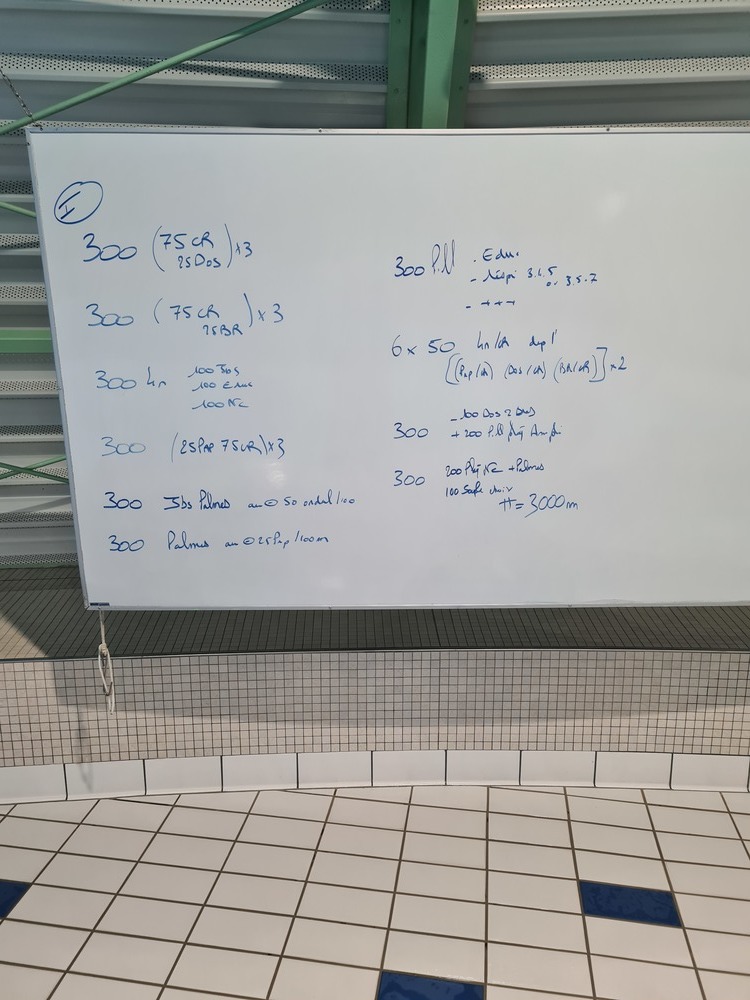 I
300 (75 CR
25 DOS) x3
300 (75 CR
25 BR) x3
300 4n 100 Jbs
100 Educ
100 NC
300 (25 Pap 75 CR) x3
300 Jbs Palmes au 50 ondul/100
300 Palmes au 25 Pap/100m
300 Pull . Educ
- Respi 3.4.5
ou 3.5.7
- +++
6 x 50 4n/CR dept
[(Pap/CR) (Dos/CR) (BR/CR)] x2
300 - 100 Dos 2 Bras
+ 200 Pull Plq
300 200 Plq NC + Palmes
100 Souple choix
TT = 3000m